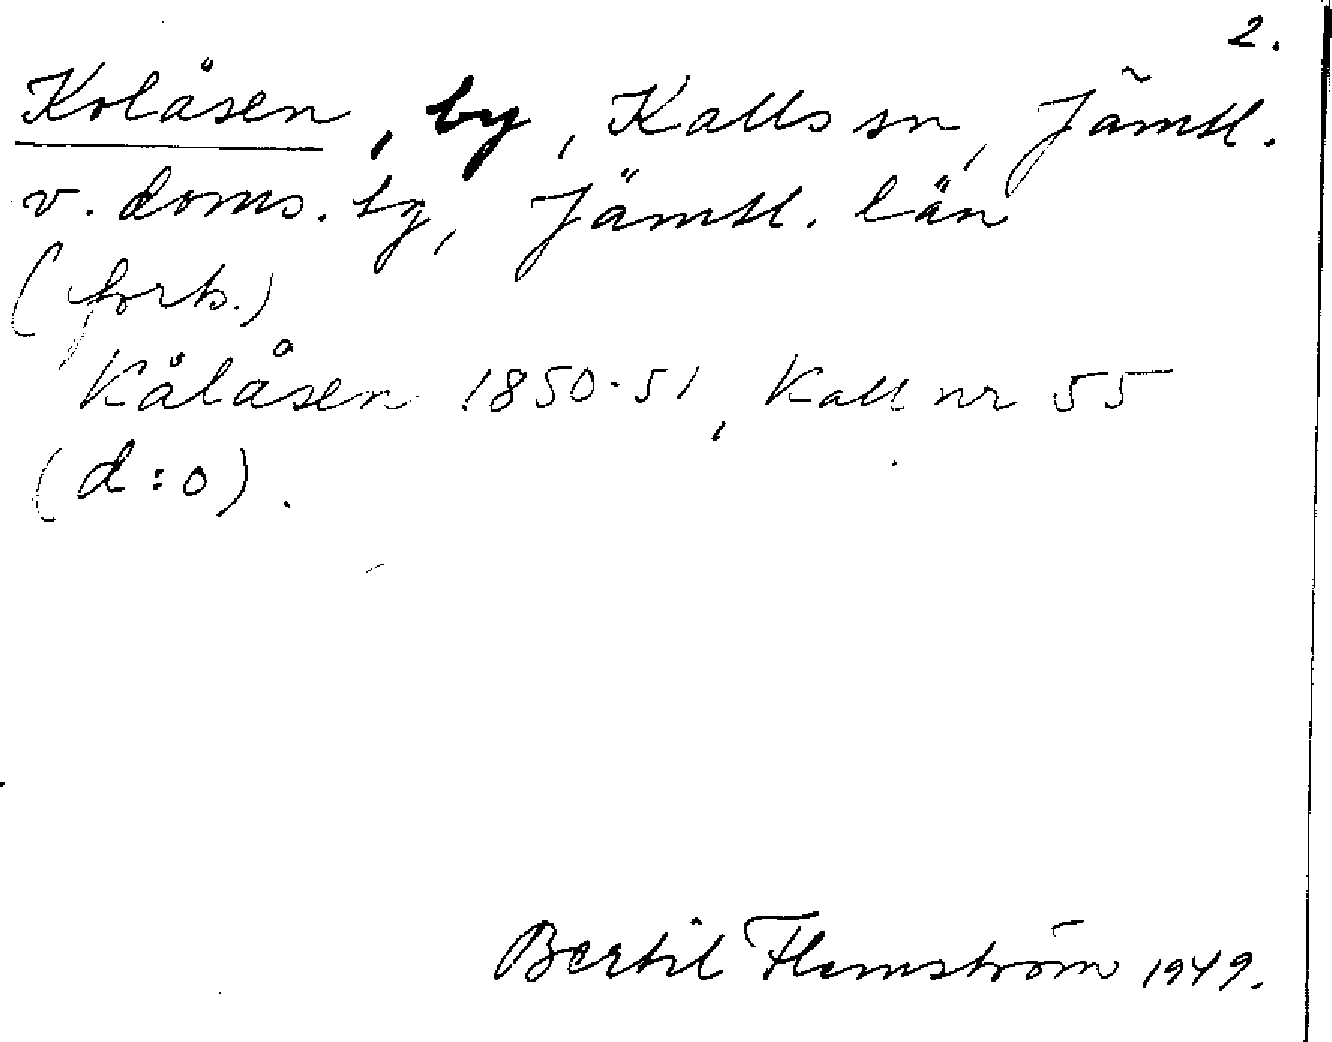 2.
Kolåsen, by, Kalls sn, Jämtl.
v. doms. sg, Jämtl. län
(forts.)
Kålåsen 1850-51, Kall nr 55
(d:o).
Bertil Flemström 1949.